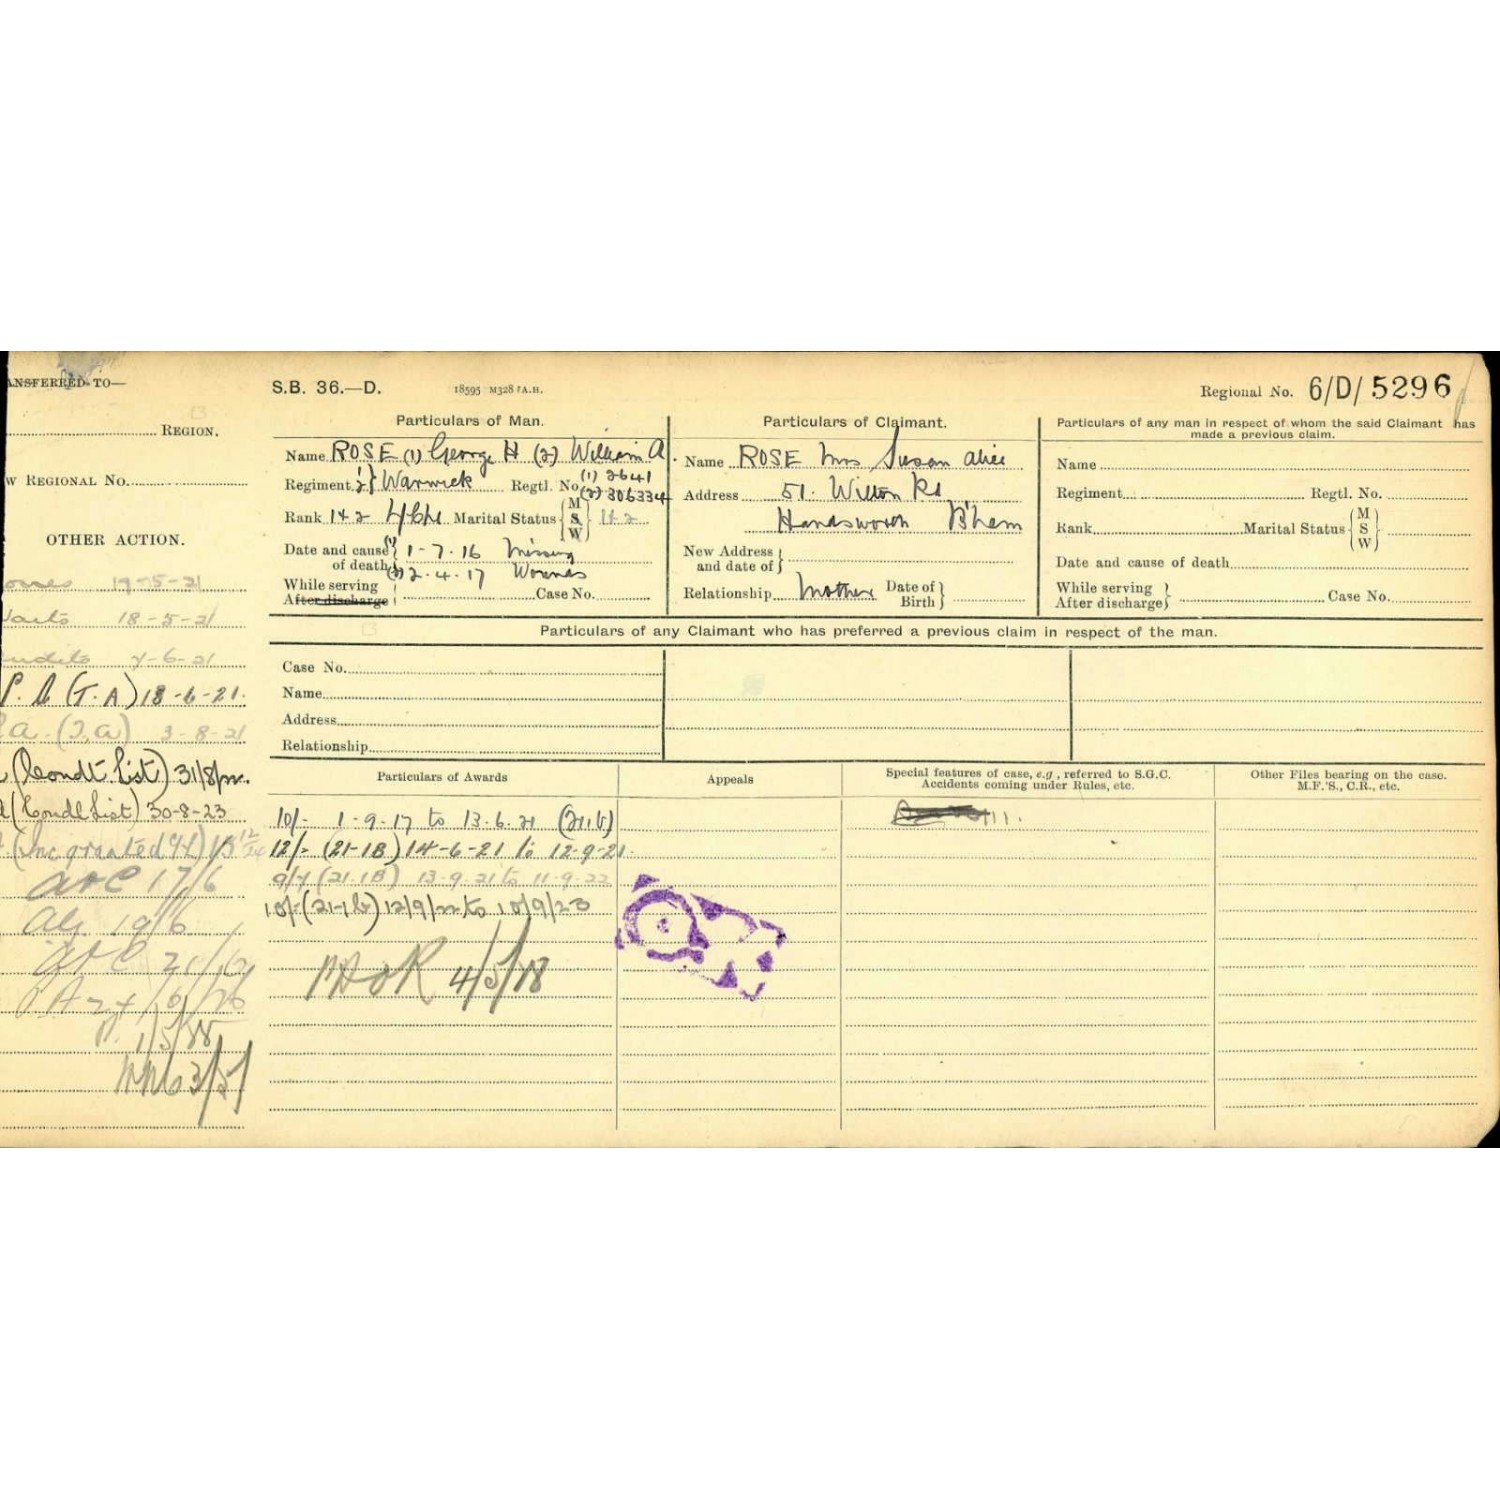 ANSFERRED TO—
REGION.
W REGIONAL No.
OTHER ACTION.
19-5-21
18-5-21
7-6-21
(T.A) 18-6-21.
3-8-21
(Condt. List) 31/8/22.
(Condl List) 30-8-23
17/6
19/6
S.B. 36.—D.
18595 M328
Regional No. 6/D/5296
Particulars of Man.
Name ROSE (1) George H (2) William A.
Regiment 1/2} Warwick Regtl. No. (1) 2641
(2) 306334
Rank 1+2 Marital Status {M S W} 1+2
Date and cause of death } (1) 1-7-16 Missing
(2) 2.4.17 Wounds
While serving
After discharge } Case No.
Particulars of Claimant.
Name ROSE Mrs Susan Alice
Address 51. Wilton Rd
Handsworth B'ham
New Address and date of }
Relationship Mother Date of Birth }
Particulars of any man in respect of whom the said Claimant has
made a previous claim.
Name
Regiment Regtl. No.
Rank Marital Status {M S W}
Date and cause of death
While serving
After discharge } Case No.
Particulars of any Claimant who has preferred a previous claim in respect of the man.
Case No.
Name
Address
Relationship
Particulars of Awards
10/- 1-9-17 to 13.6.21 (21.b)
12/- (21-1B) 14-6-21 to 12-9-21
(21.1B) 13.9.21 to 11-9-22
10/- (21-1b) 12/9/22 to 10/9/23
Appeals
Special features of case, e.g., referred to S.G.C.
Accidents coming under Rules, etc.
Other Files bearing on the case.
M.F.'S., C.R., etc.